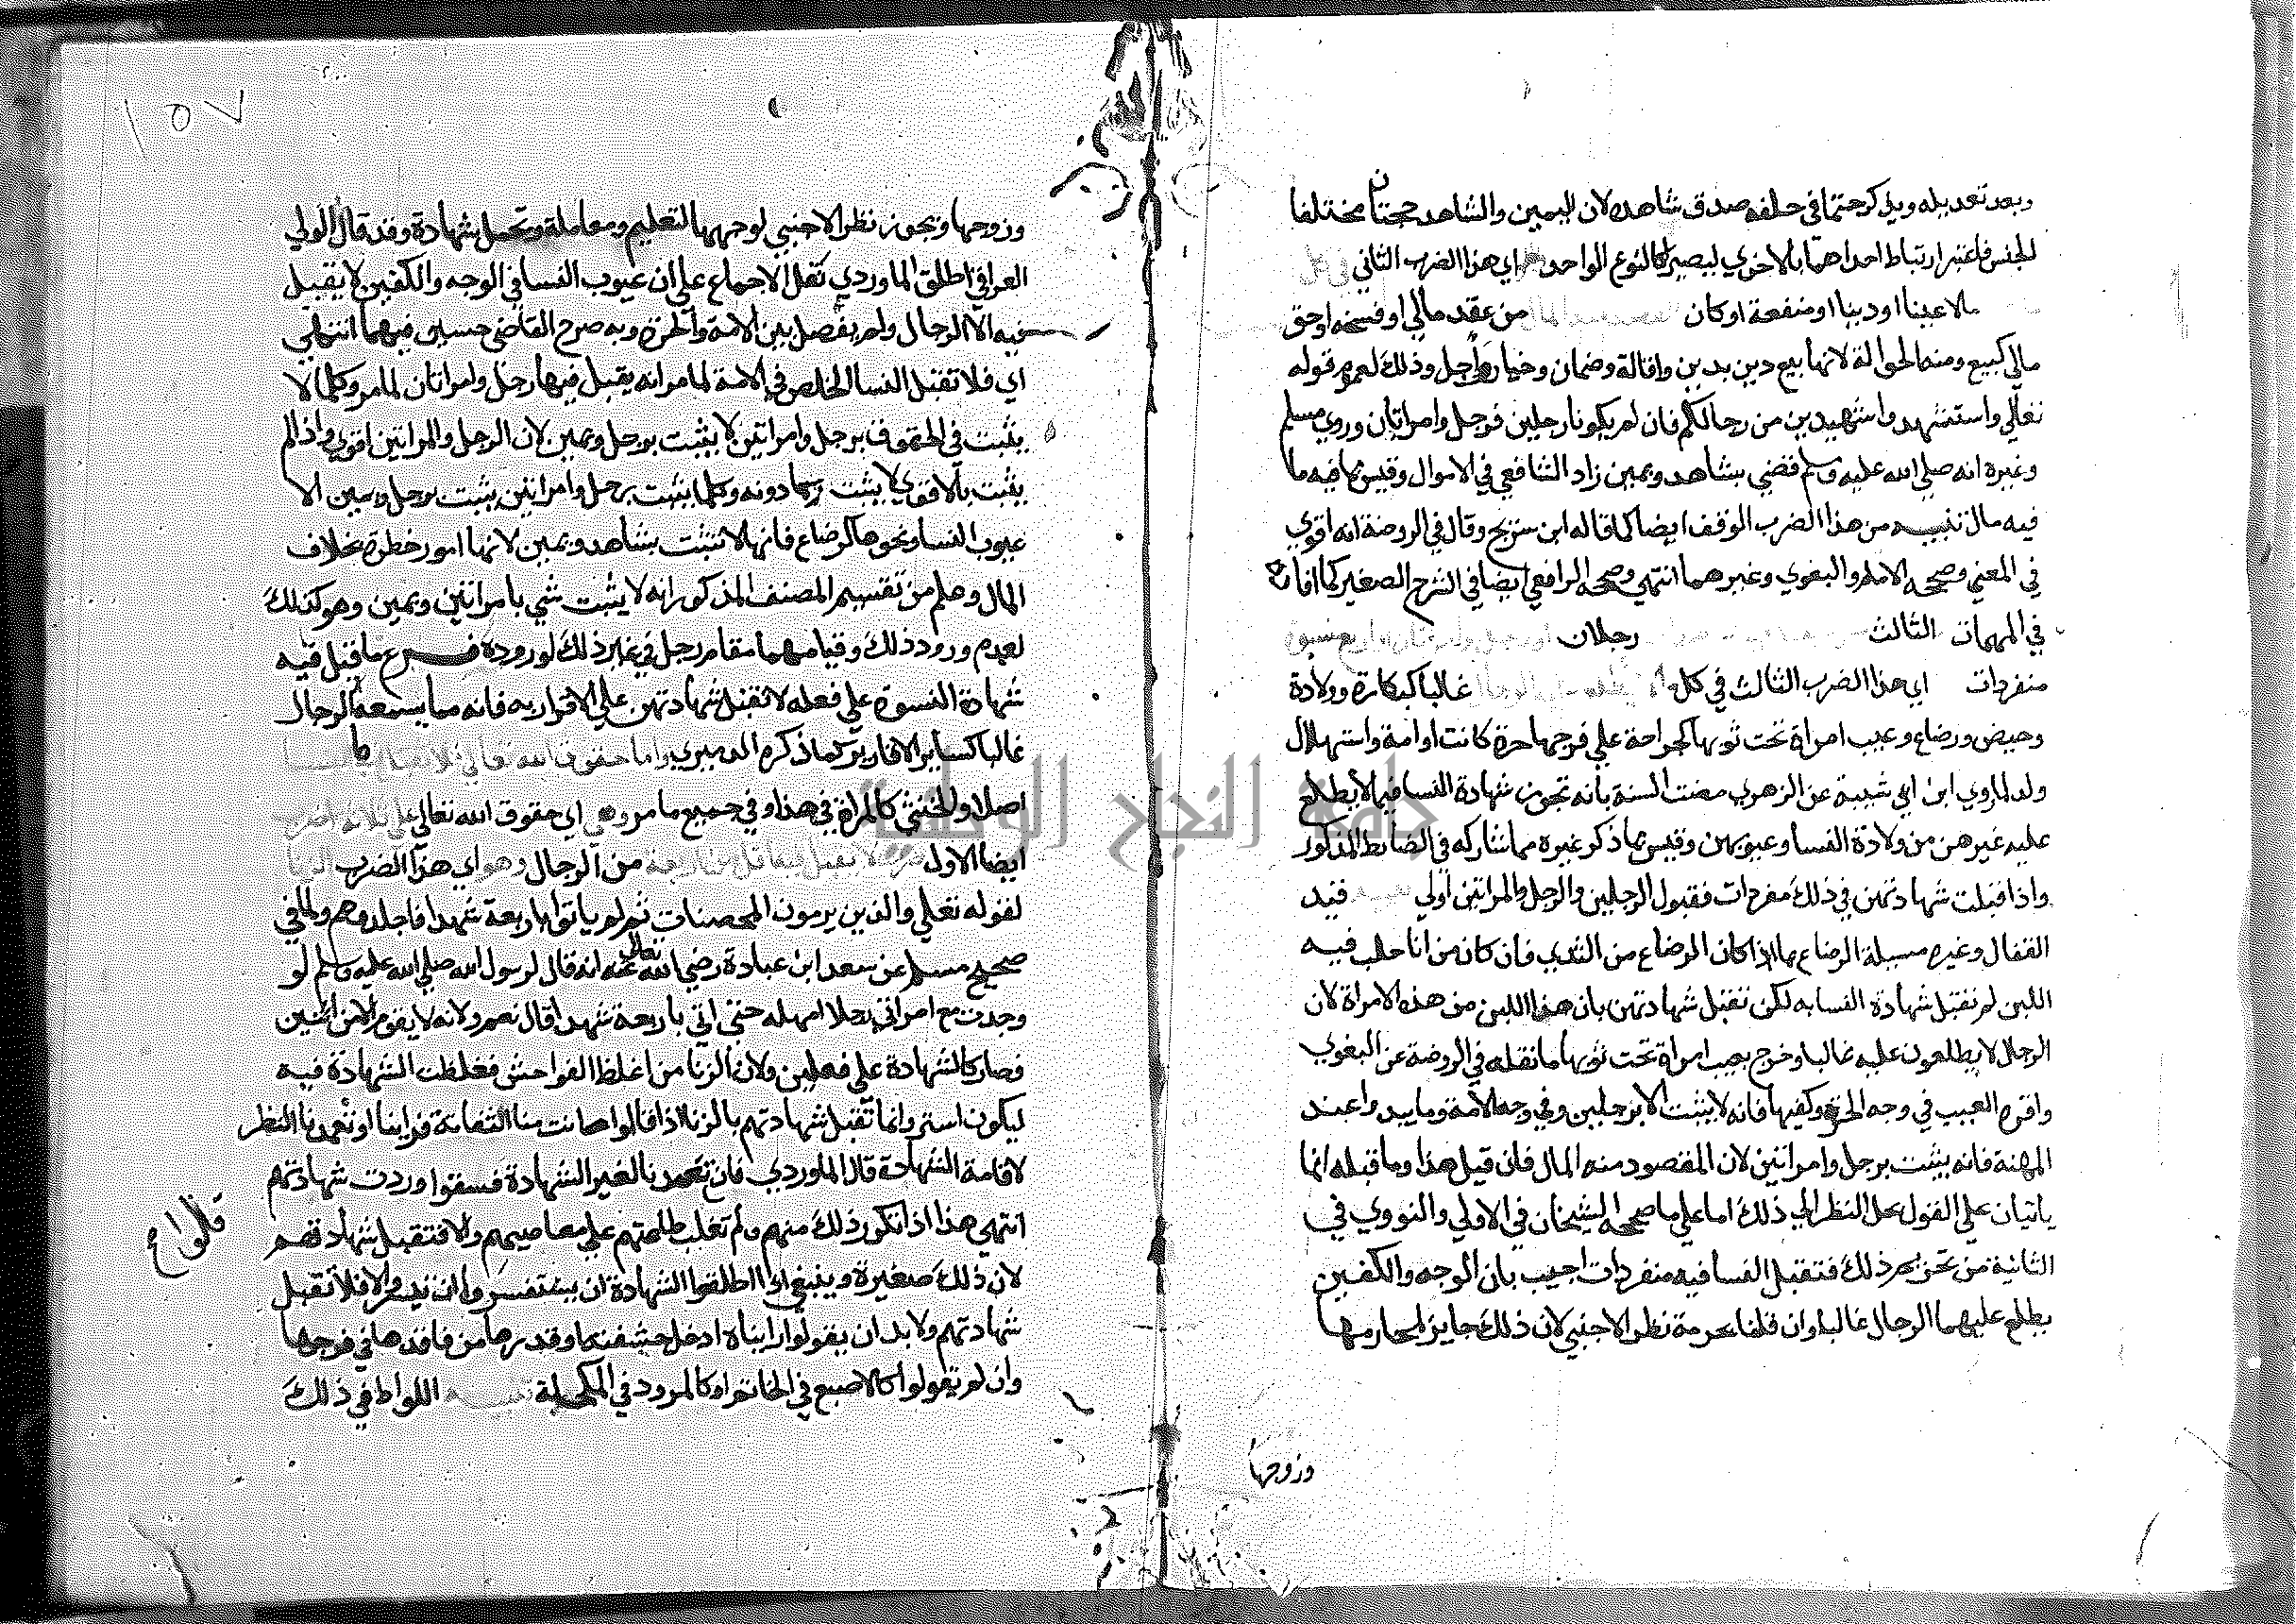 وبعد تعديله ويذكر حتما في حلفه صدق شاهده لان اليمين والشاهد حجتان مختلفا
الجنس فاعتبر ارتباط احداهما بالاخري ليصيرا كالنوع الواحد اي هذا الضرب الثاني في كل
مالا عينا او دينا او منفعة او كان من عقد مالي او فسخه او حق
مالي كبيع ومنه الحوالة لانها بيع دين بدين واقالة وضمان وخيار واجل وذلك لعموم قوله
تعالي واستشهدوا شهيدين من رجالكم فان لم يكونا رجلين فرجل وامراتان وروي مسلم
وغيره انه صلي الله عليه وسلم قضي بشاهد ويمين زاد الشافعي في الاموال وقيس بما فيه ما
فيه مال تنبيه من هذا الضرب الوقف ايضا كما قاله ابن سريج وقال في الروضة انه اقوي
في المعني وصححه الامام والبغوي وغيرهما انتهي وصححه الرافعي ايضا في الشرح الصغير كما افاده
في المهمات الثالث رجلان او رجل وامراتان او اربع نسوة
منفردات اي هذا الضرب الثالث في كل غالبا كبكارة وولادة
وحيض ورضاع وعيب امراة تحت ثوبها كجراحة علي فرجها حرة كانت او امة واستهلال
ولد لما روي ابن ابي شيبة عن الزهري مضت السنة بانه تجوز شهادة النسا فيما لا يطلع
عليه غيرهن من ولادة النسا وعيوبهن وقيس بما ذكر غيره مما شاركه في الضابط المذكور
واذا قبلت شهادتهن في ذلك منفردات فقبول الرجلين والرجل والمراتين اولي قيد
القفال وغيره مسيلة الرضاع بما اذا كان الرضاع من الثدي فان كان من انا حلب فيه
اللبن لم تقبل شهادة النسا به لكن تقبل شهادتهن بان هذا اللبن من هذه الامراة لان
الرجال لا يطلعون عليه غالبا وخرج بعيب امراة تحت ثوبها ما نقله في الروضة عن البغوي
واقره العيب في وجه الحرة وكفيها فانه لا يثبت الا برجلين وفي وجه الامة وما يبدوا عند
المهنة فانه يثبت برجل وامراتين لان المقصود منه المال فان قيل هذا وما قبله انما
ياتيان علي القول بحل النظر الي ذلك اما علي ما صححه الشيخان في الاولي والنووي في
الثانية من تحريم ذلك فتقبل النسا فيه منفردات اجيب بان الوجه والكفين
يطلع عليهما الرجال غالبا وان قلنا بحرمة نظر الاجنبي لان ذلك جايز لمحارمها
وزوجها
١٥٧
وزوجها ويجوز نظر الاجنبي لوجهها لتعليم ومعاملة وتحمل شهادة وقد قال الولي
العراقي اطلق الماوردي نقل الاجماع علي ان عيوب النسا في الوجه والكفين لا يقبل
فيه الا الرجال ولم يفصل بين الامة والحرة وبه صرح القاضي حسين فيهما انتهي
اي فلا تقبل النسا الخلص في الامة لما مر انه يقبل فيها رجل وامراتان لما مر وكلما لا
يثبت في الحقوق برجل وامراتين لا يثبت برجل ويمين لان الرجل والمراتين اقوي واذا لم
يثبت بالاقوي لا يثبت بما دونه وكلما يثبت برجل وامراتين يثبت برجل ويمين الا
عيوب النسا ونحوها كالرضاع فانها لا تثبت بشاهد ويمين لانها امور خطرة بخلاف
المال وعلم من تقسيم المصنف المذكور انه لا يثبت شي بامراتين ويمين وهو كذلك
لعدم ورود ذلك وقيامهما مقام رجل في غير ذلك لوروده فرع ما قبل فيه
شهادة النسوة علي فعله لا تقبل شهادتهن علي الاقرار به فانه مما يسمعه الرجال
غالبا كساير الاقارير كما ذكره الدميري واما حقوق الله تعالي فلا تقبل فيها النسا
اصلا والخنثي كالمراة في هذا وفي جميع ما مر وهي اي حقوق الله تعالي علي ثلاثة اضرب
ايضا الاول ضرب لا يقبل فيه اقل من اربعة من الرجال وهو اي هذا الضرب الزنا
لقوله تعالي والذين يرمون المحصنات ثم لم ياتوا باربعة شهدا فاجلدوهم ولما في
صحيح مسلم عن سعد ابن عبادة رضي الله تعالي عنه انه قال لرسول الله صلي الله عليه وسلم لو
وجدت مع امراتي رجلا امهله حتي اتي باربعة شهدا قال نعم ولانه لا يقوم الا من اثنين
فصار كالشهادة علي فعلين ولان الزنا من اغلظ الفواحش فغلظت الشهادة فيه
ليكون استر وانما تقبل شهادتهم بالزنا اذا قالوا حانت منا التفاتة فراينا او تعمدنا النظر
لاقامة الشهادة قال الماوردي فان تعمدنا لغير الشهادة فسقوا وردت شهادتهم
انتهي هذا اذا تكرر ذلك منهم ولم تغلب طاعتهم علي معاصيهم والا فتقبل شهادتهم
لان ذلك صغيرة وينبغي اذا اطلقوا الشهادة ان يستفسروا ان تيسر والا فلا تقبل
شهادتهم ولا بد ان يقولوا رايناه ادخل حشفته او قدرها من فاقدها في فرجها
وان لم يقولوا كالاصبع في الخاتم او كالمرود في المكحلة تنبيه اللواط في ذلك